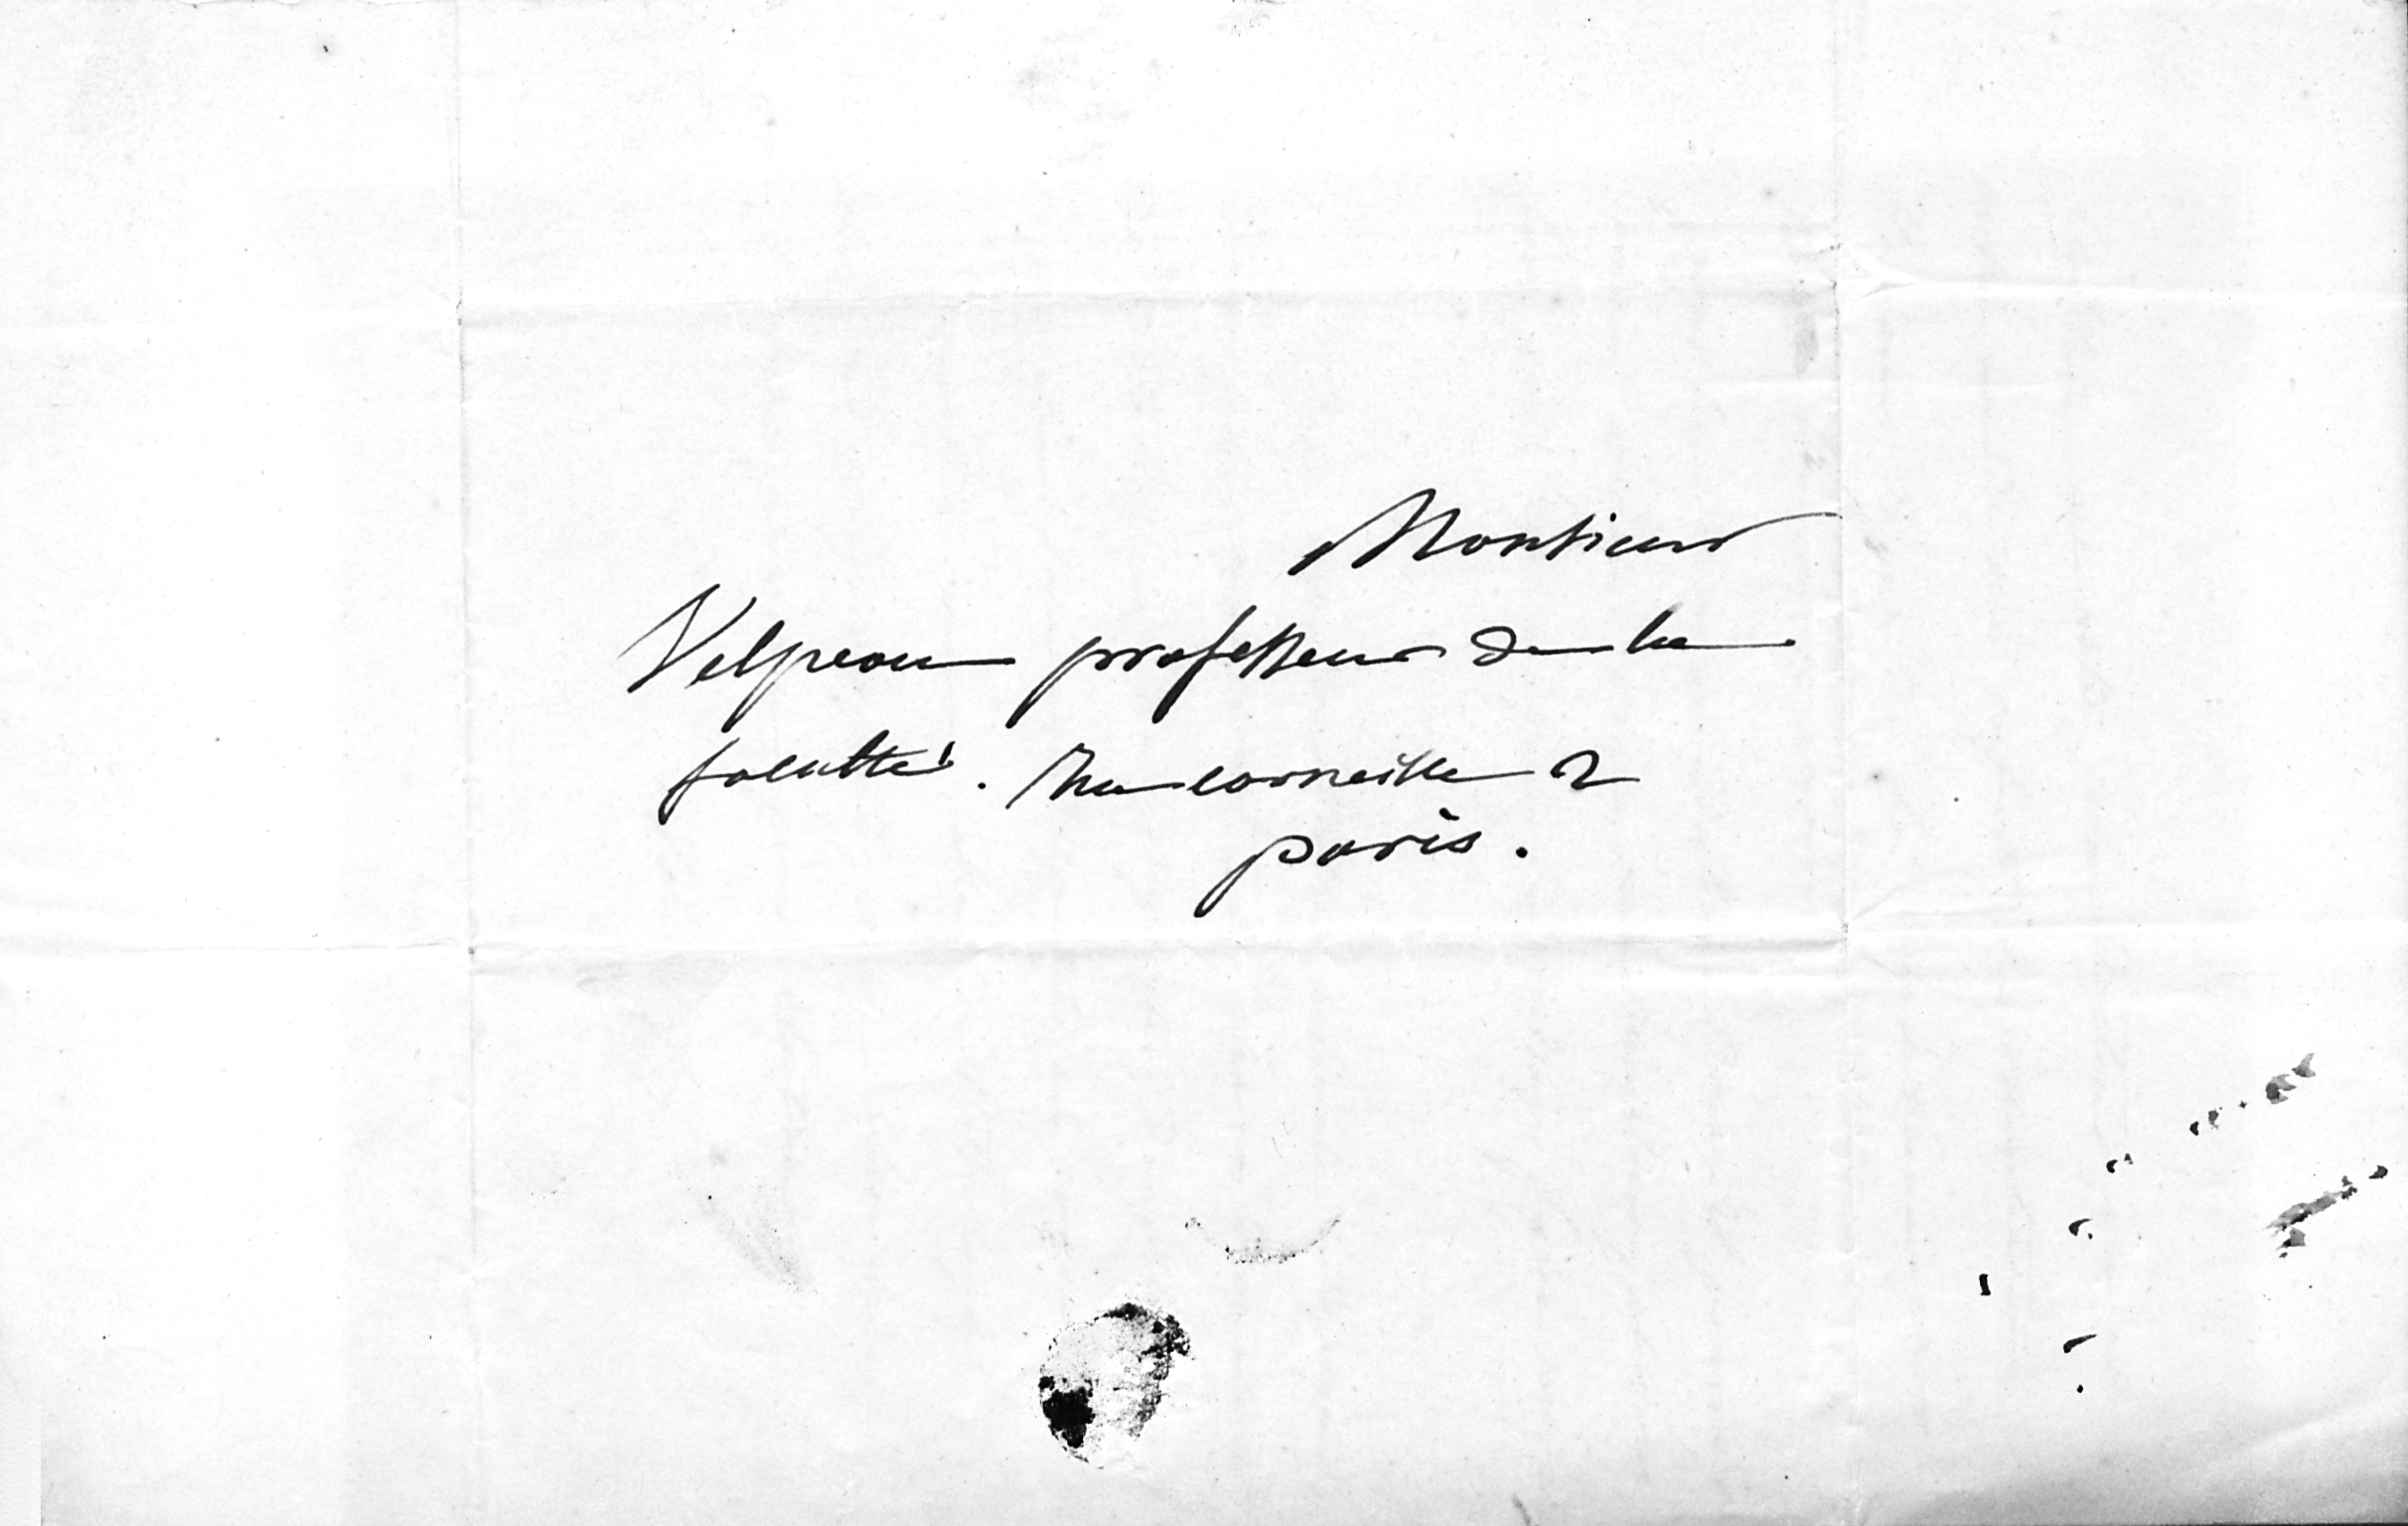 Monsieur
Velpeau professeur de la
facultté. Rue corneille 2
paris.